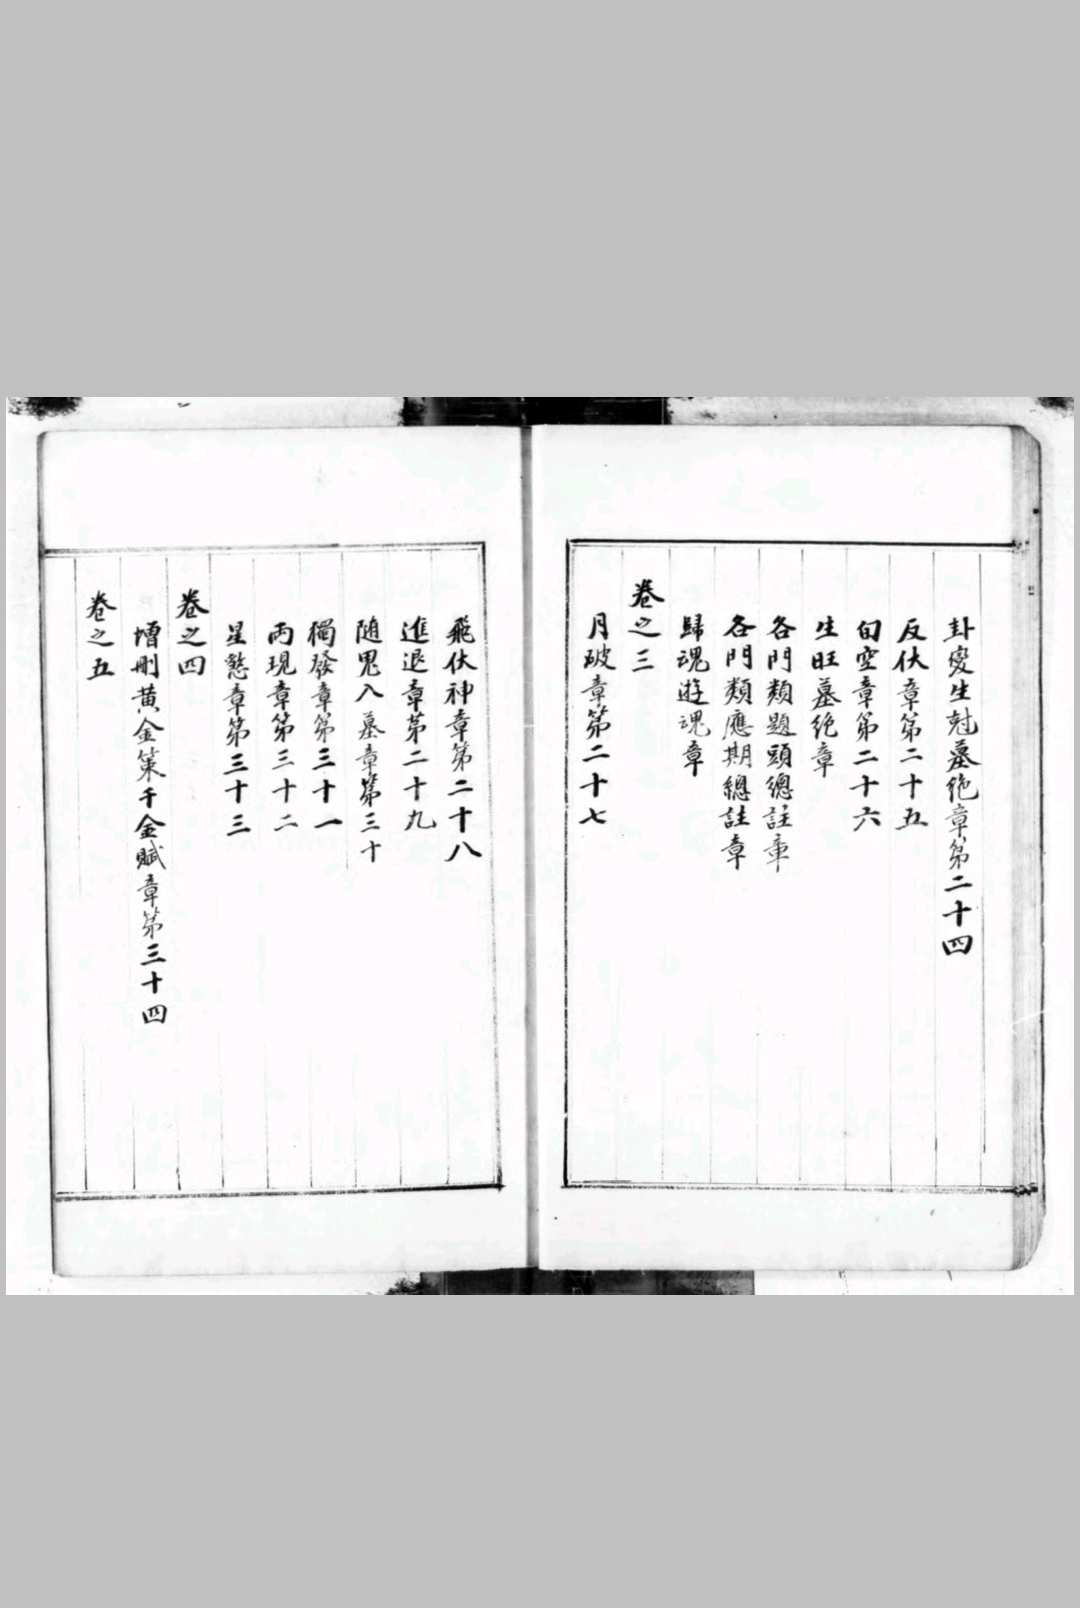 卦變生尅墓絶章第二十四
反伏章第二十五
旬空章第二十六
生旺墓絶章
各門類題頭總註章
各門類應期總註章
歸魂遊魂章
卷之三
月破章第二十七
飛伏神章第二十八
進退章第二十九
随鬼入墓章第三十
獨發章第三十一
兩現章第三十二
星煞章第三十三
卷之四
增刪黄金策千金賦章第三十四
卷之五